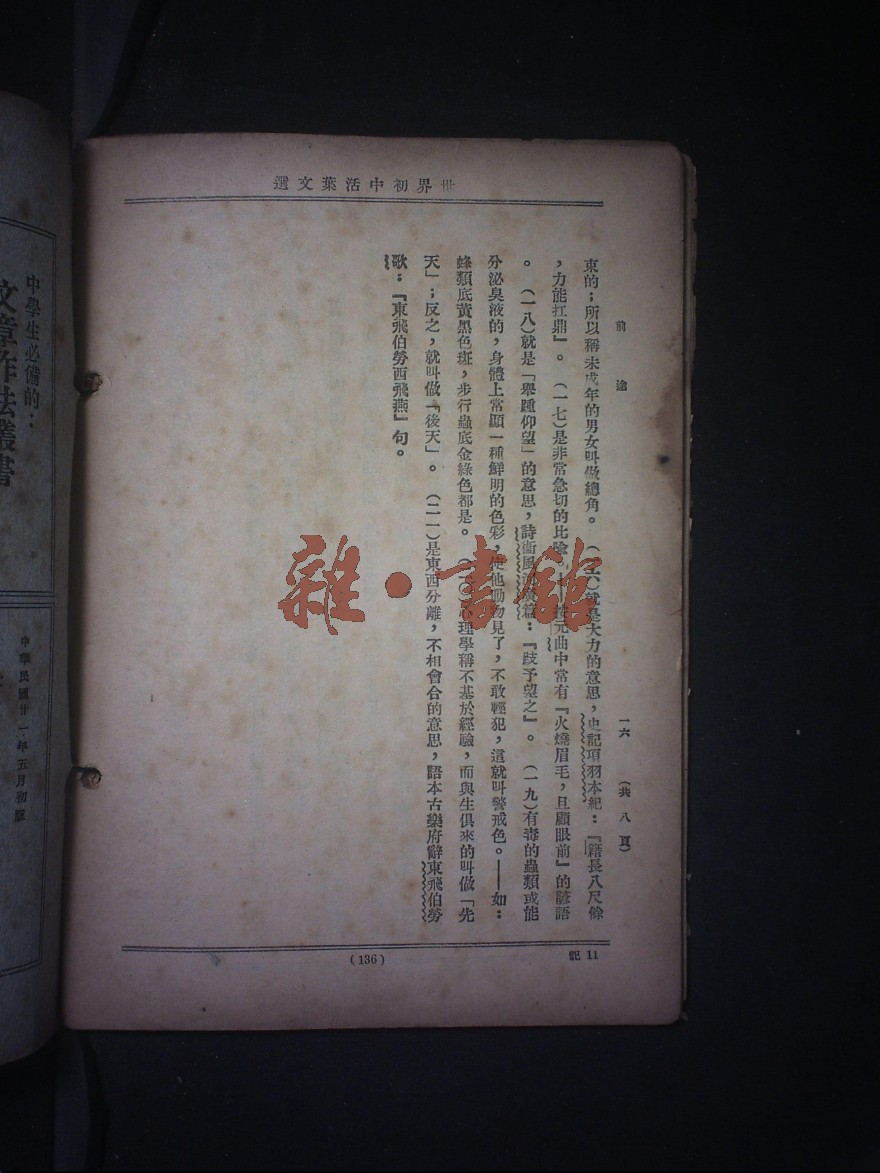 世界初中活葉文選
前途 一六 (共八頁)
束的；所以稱未成年的男女叫做總角。 (一六)就是大力的意思，史記項羽本紀：『籍長八尺餘
，力能扛鼎』。 (一七)是非常急切的比喻。按元曲中常有『火燒眉毛，且顧眼前』的諺語
。 (一八)就是「舉踵仰望」的意思，詩衞風 篇：『跂予望之』。 (一九)有毒的蟲類或能
分泌臭液的，身體上常顯一種鮮明的色彩，使他動物見了，不敢輕犯，這就叫警戒色。——如：
蜂類底黃黑色斑，步行蟲底金綠色都是。 (二〇)心理學稱不基於經驗，而與生俱來的叫做「先
天」；反之，就叫做「後天」。 (二一)是東西分離，不相會合的意思，語本古樂府辭東飛伯勞
歌：『東飛伯勞西飛燕』句。
記 11
(136)
雜·書館
中學生必備的：
文章作法叢書
中華民國廿一年五月初版